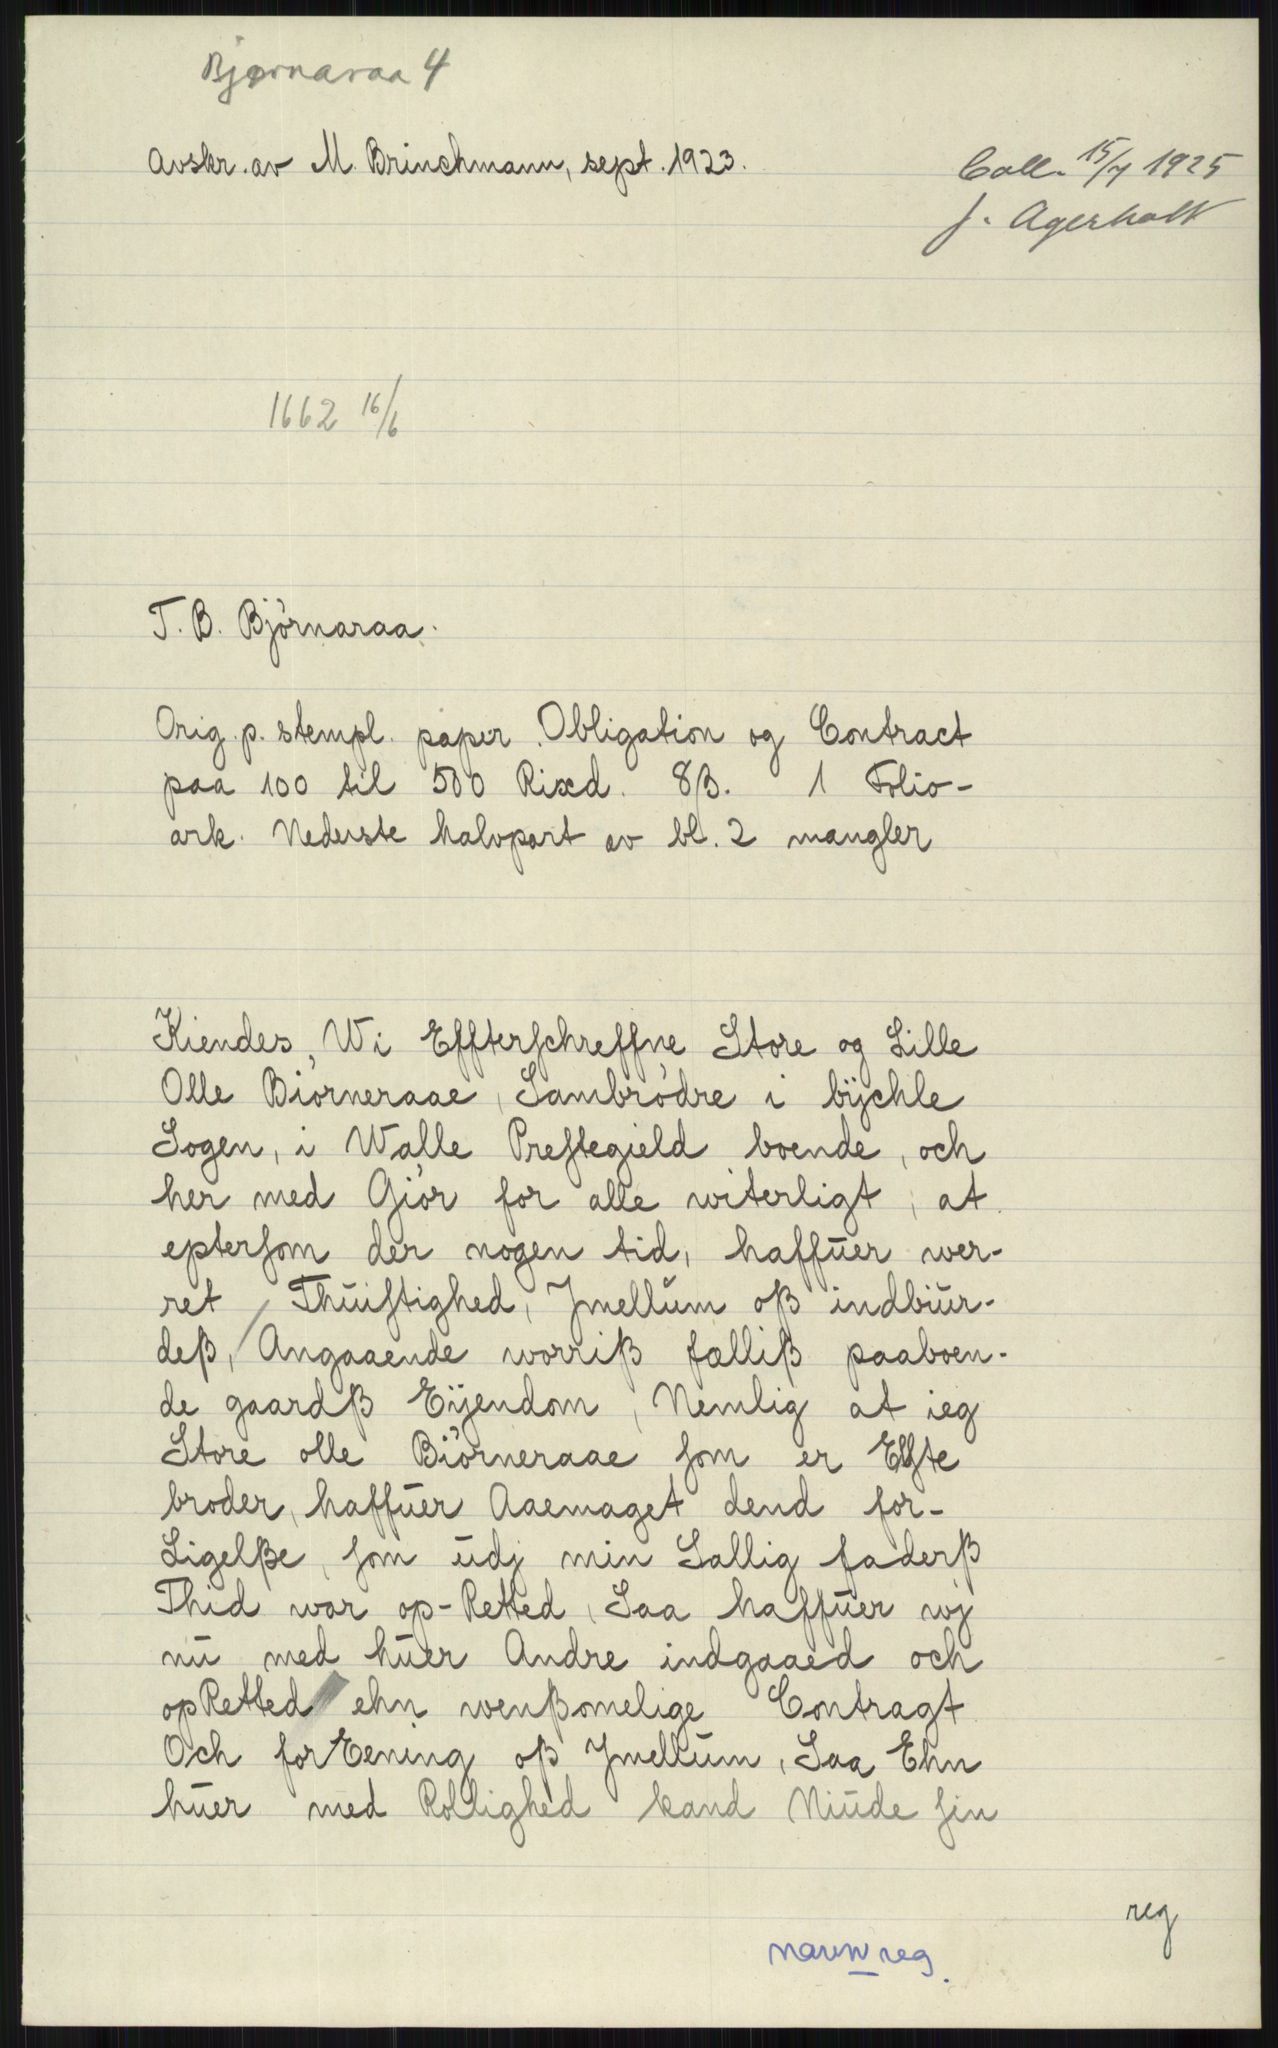 Bjørnaraa 4
Avskr. av M. Brinchmann, sept. 1923.
Coll. 15/7 1925
J. Agerholt
1662 16/6
T. B. Bjørnaraa.
Orig. p. stempl. papir. Obligation og Contract
paa 100 til 500 Rixd. 8 β. 1 Folio-
ark. Nederste halvpart av bl. 2 mangler
Kiendes, Wi Effterschreffne Store og Lille
Olle Biörneraae, Sambrödre i bÿchle
Sogen, i Walle Prestegield boende, och
her med Giör for alle witerligt, at
eptersom der nogen tid, haffuer wer-
ret / Thuistighed, Jmellum oß indbiur-
deß, / Angaaende worriß fælliß paaboen-
de gaardß Eÿendom, Nemlig at ieg
Store olle Biörneraae som er Elste
broder, haffuer Aaemaget dend for-
Ligelße, som udj min Sallig faderß
Thid war op-Retted, Saa haffuer wj
nu med huer Andre indgaaed och
opRetted ehn wenßomelige Contragt
Och forEening oß Jmellum, Saa Ehn
huer med Rollighed kand Niude sin
reg
navnreg.